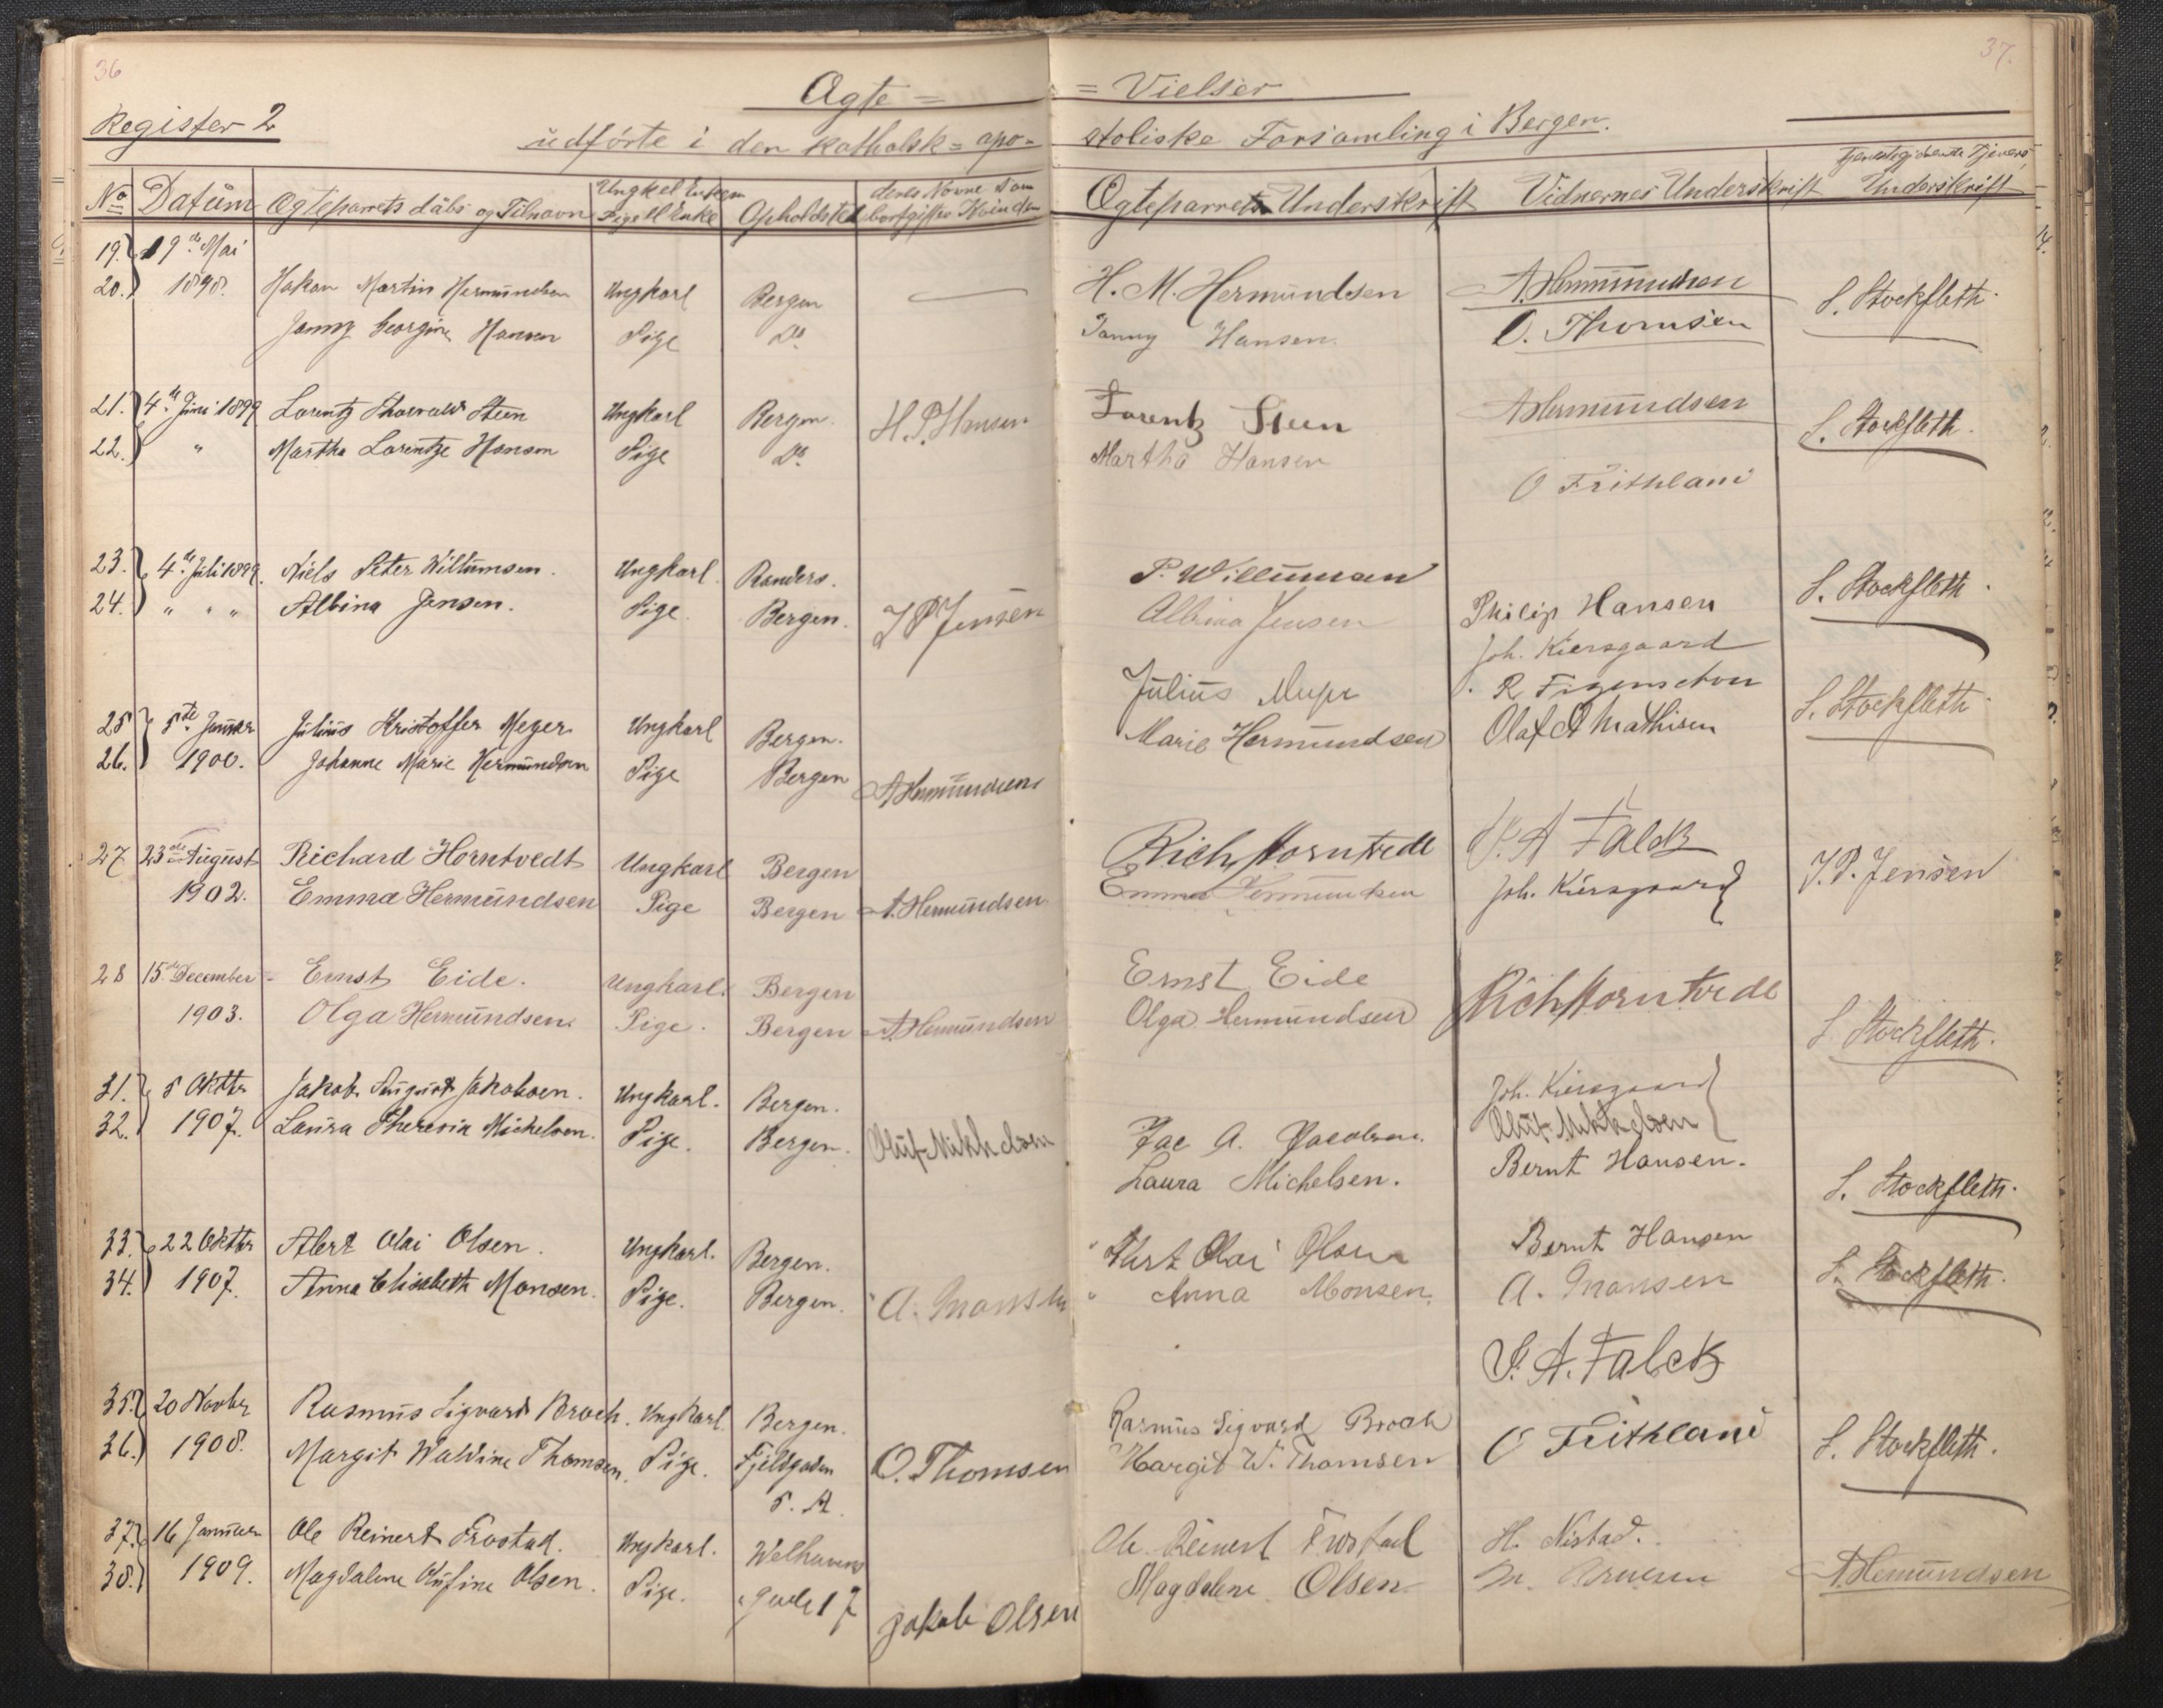 36
37.
Ægte = = Vielser
Register 2
udførte i den katholsk = apo= stoliske Forsamling i Bergen.
No Datum Ægteparrets døbs og Tilnavn Ungkel Enkem Pige ell Enke Opholdsted deres Navne som bortgifter Kvinden Ægteparrets Underskrift Vidnernes Underskrift Tjeneres Underskrift
19. 19de Mai
20. 1898. Hakon Martin Hermundsen Ungkarl Bergen H. M. Hermundsen A. Hermundsen S. Stockfleth.
Janny Georgine Hansen Pige Do. Janny Hansen. O. Thomsen
21. 4de Juni 1899 Lorentz Thorvald Steen Ungkarl Bergen. H. P. Hansen Lorentz Steen A Hermundsen S. Stockfleth.
22. " Martha Lorentze Hansen Pige Do. Martha Hansen O Frithland
23. 4de Juli 1899. Niels Peter Willumsen. Ungkarl. Randers. P. Willumsen S. Stockfleth.
24. " " " Albina Jensen. Pige. Bergen. J P Jensen Albina Jensen Philip Hansen
Joh. Kiersgaard
25 5te Januar Julius Kristoffer Meyer. Ungkarl Bergen. Julius Meyer R. Figenschou S. Stockfleth.
26. 1900. Johanne Marie Hermundsen Pige Bergen A Hermundsen Marie Hermundsen Olaf A Mathisen
27 23de August Richard Horntvedt Ungkarl Bergen Rich Horntvedt P. A Falck J. P. Jensen
1902. Emma Hermundsen Pige Bergen A. Hermundsen. Emma Hermundsen Joh. Kiersgaard
28 15de December Ernst Eide. Ungkarl. Bergen Ernst Eide Rich Horntvedt
1903. Olga Hermundsen. Pige. Bergen A. Hermundsen Olga Hermundsen S Stockfleth.
31. 5 Oktbr Jakob August Jakobsen. Ungkarl. Bergen. Joh. Kiersgaard
32. 1907. Laura Theresia Michelsen. Pige. Bergen. Oluf Mikkelsen Jac A. Jacobsen. Oluf Mikkelsen
Laura Michelsen. Bernt Hansen. S. Stockfleth.
33. 22 Oktbr Alert Olai Olsen. Ungkarl. Bergen. Alert Olai Olsen Bernt Hansen S. Stockfleth.
34. 1907. Anna Elisabeth Monsen. Pige. Bergen. A. Monsen Anna Monsen. A. Monsen
P. A. Falck
35. 20 Novbr Rasmus Sigvard Broch. Ungkarl. Bergen. Rasmus Sigvard Broch O Frithland S. Stockfleth.
36. 1908. Margit Waldine Thomsen. Pige. Fjeldgaden 5. A. O. Thomsen Margit W. Thomsen
37. 16 Januar Ole Reinert Frostad. Ungkarl. Welhavens Ole Reinert Frostad H. Nistad.
38. 1909. Magdalene Olufine Olsen. Pige. Gade 17 Jakob Olsen Magdalene Olsen A. Hermundsen